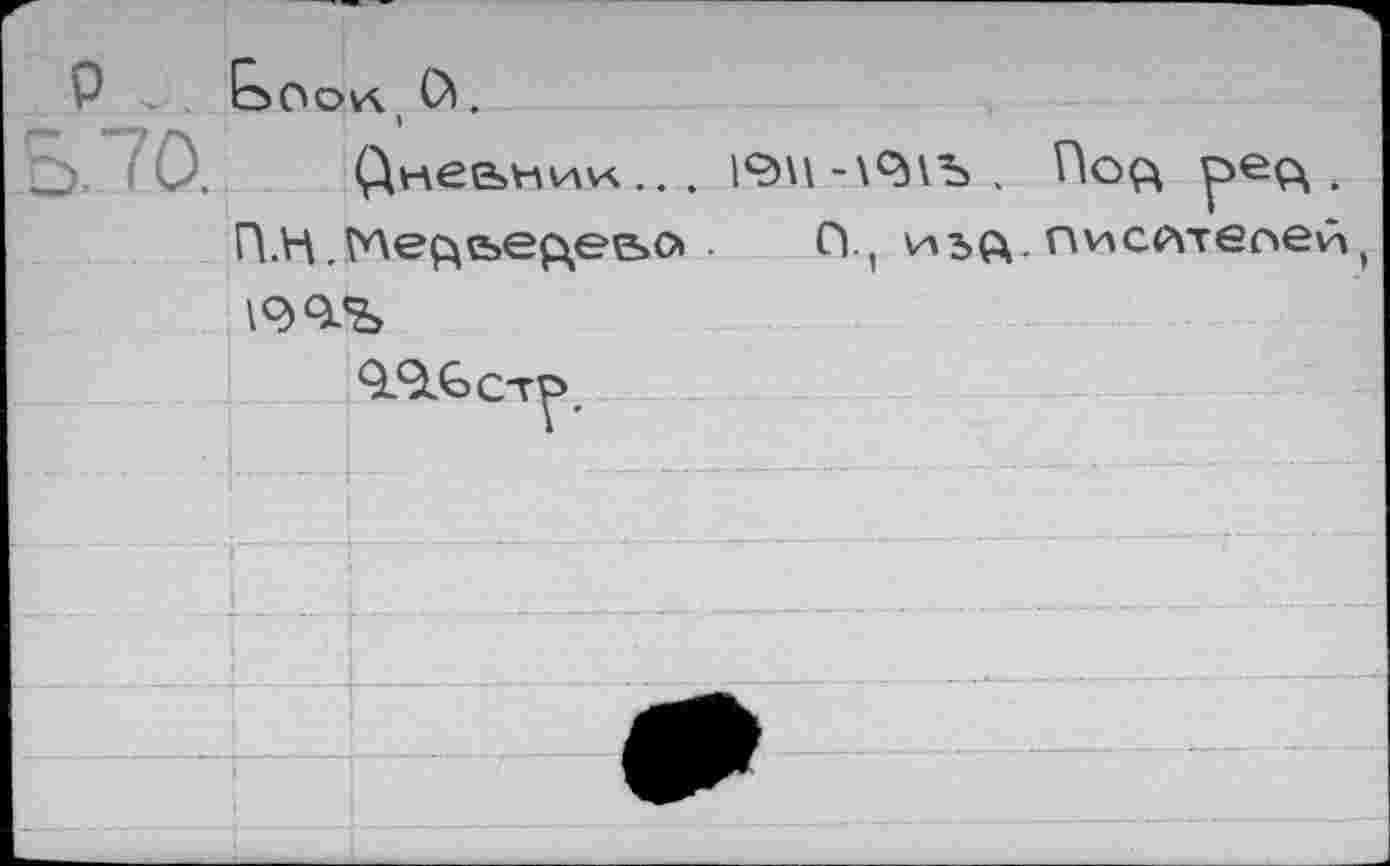 Р Блок, А.
Б.70. Дневник... 1911-1913. Под ред.
П.Н. Медведева. Л., изд. писателей,
1928
226 стр.